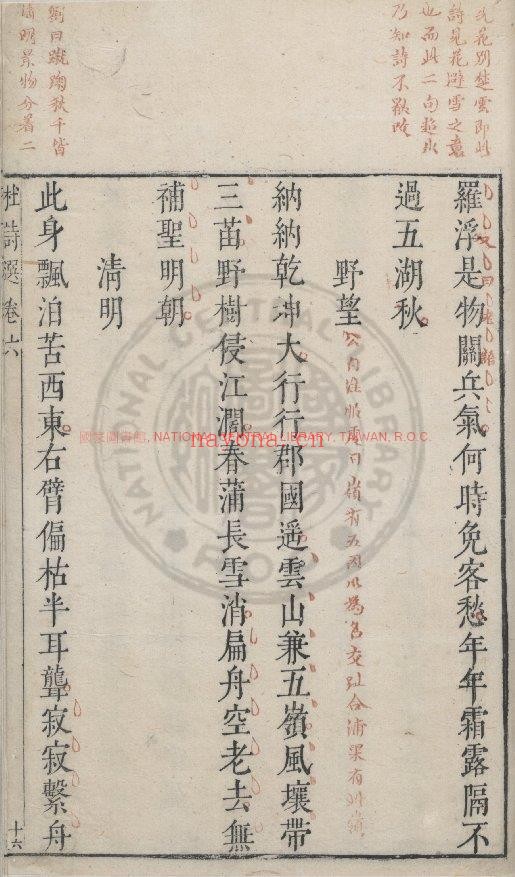 見花別楚雲即此
詩見花避雪之意
也而此二句
乃知詩不厭改
劉曰蹴踘秋千皆
清明景物分着二
羅浮是物關兵氣何時免客愁年年霜露隔不
過五湖秋
野望
公自注
曰嶺有五因以為名交趾合浦界有
納納乾坤大行行郡國遥雲山兼五嶺風壤帶
三苗野樹侵江濶春蒲長雪消扁舟空老去無
補聖明朝
清明
此身飄泊苦西東右臂偏枯半耳聾寂寂繫舟
杜詩選卷六
十六
國家圖書館, NATIONAL CENTRAL LIBRARY, TAIWAN, R.O.C.
nayona.cn
NATIONAL CENTRAL LIBRARY
R.O.C.